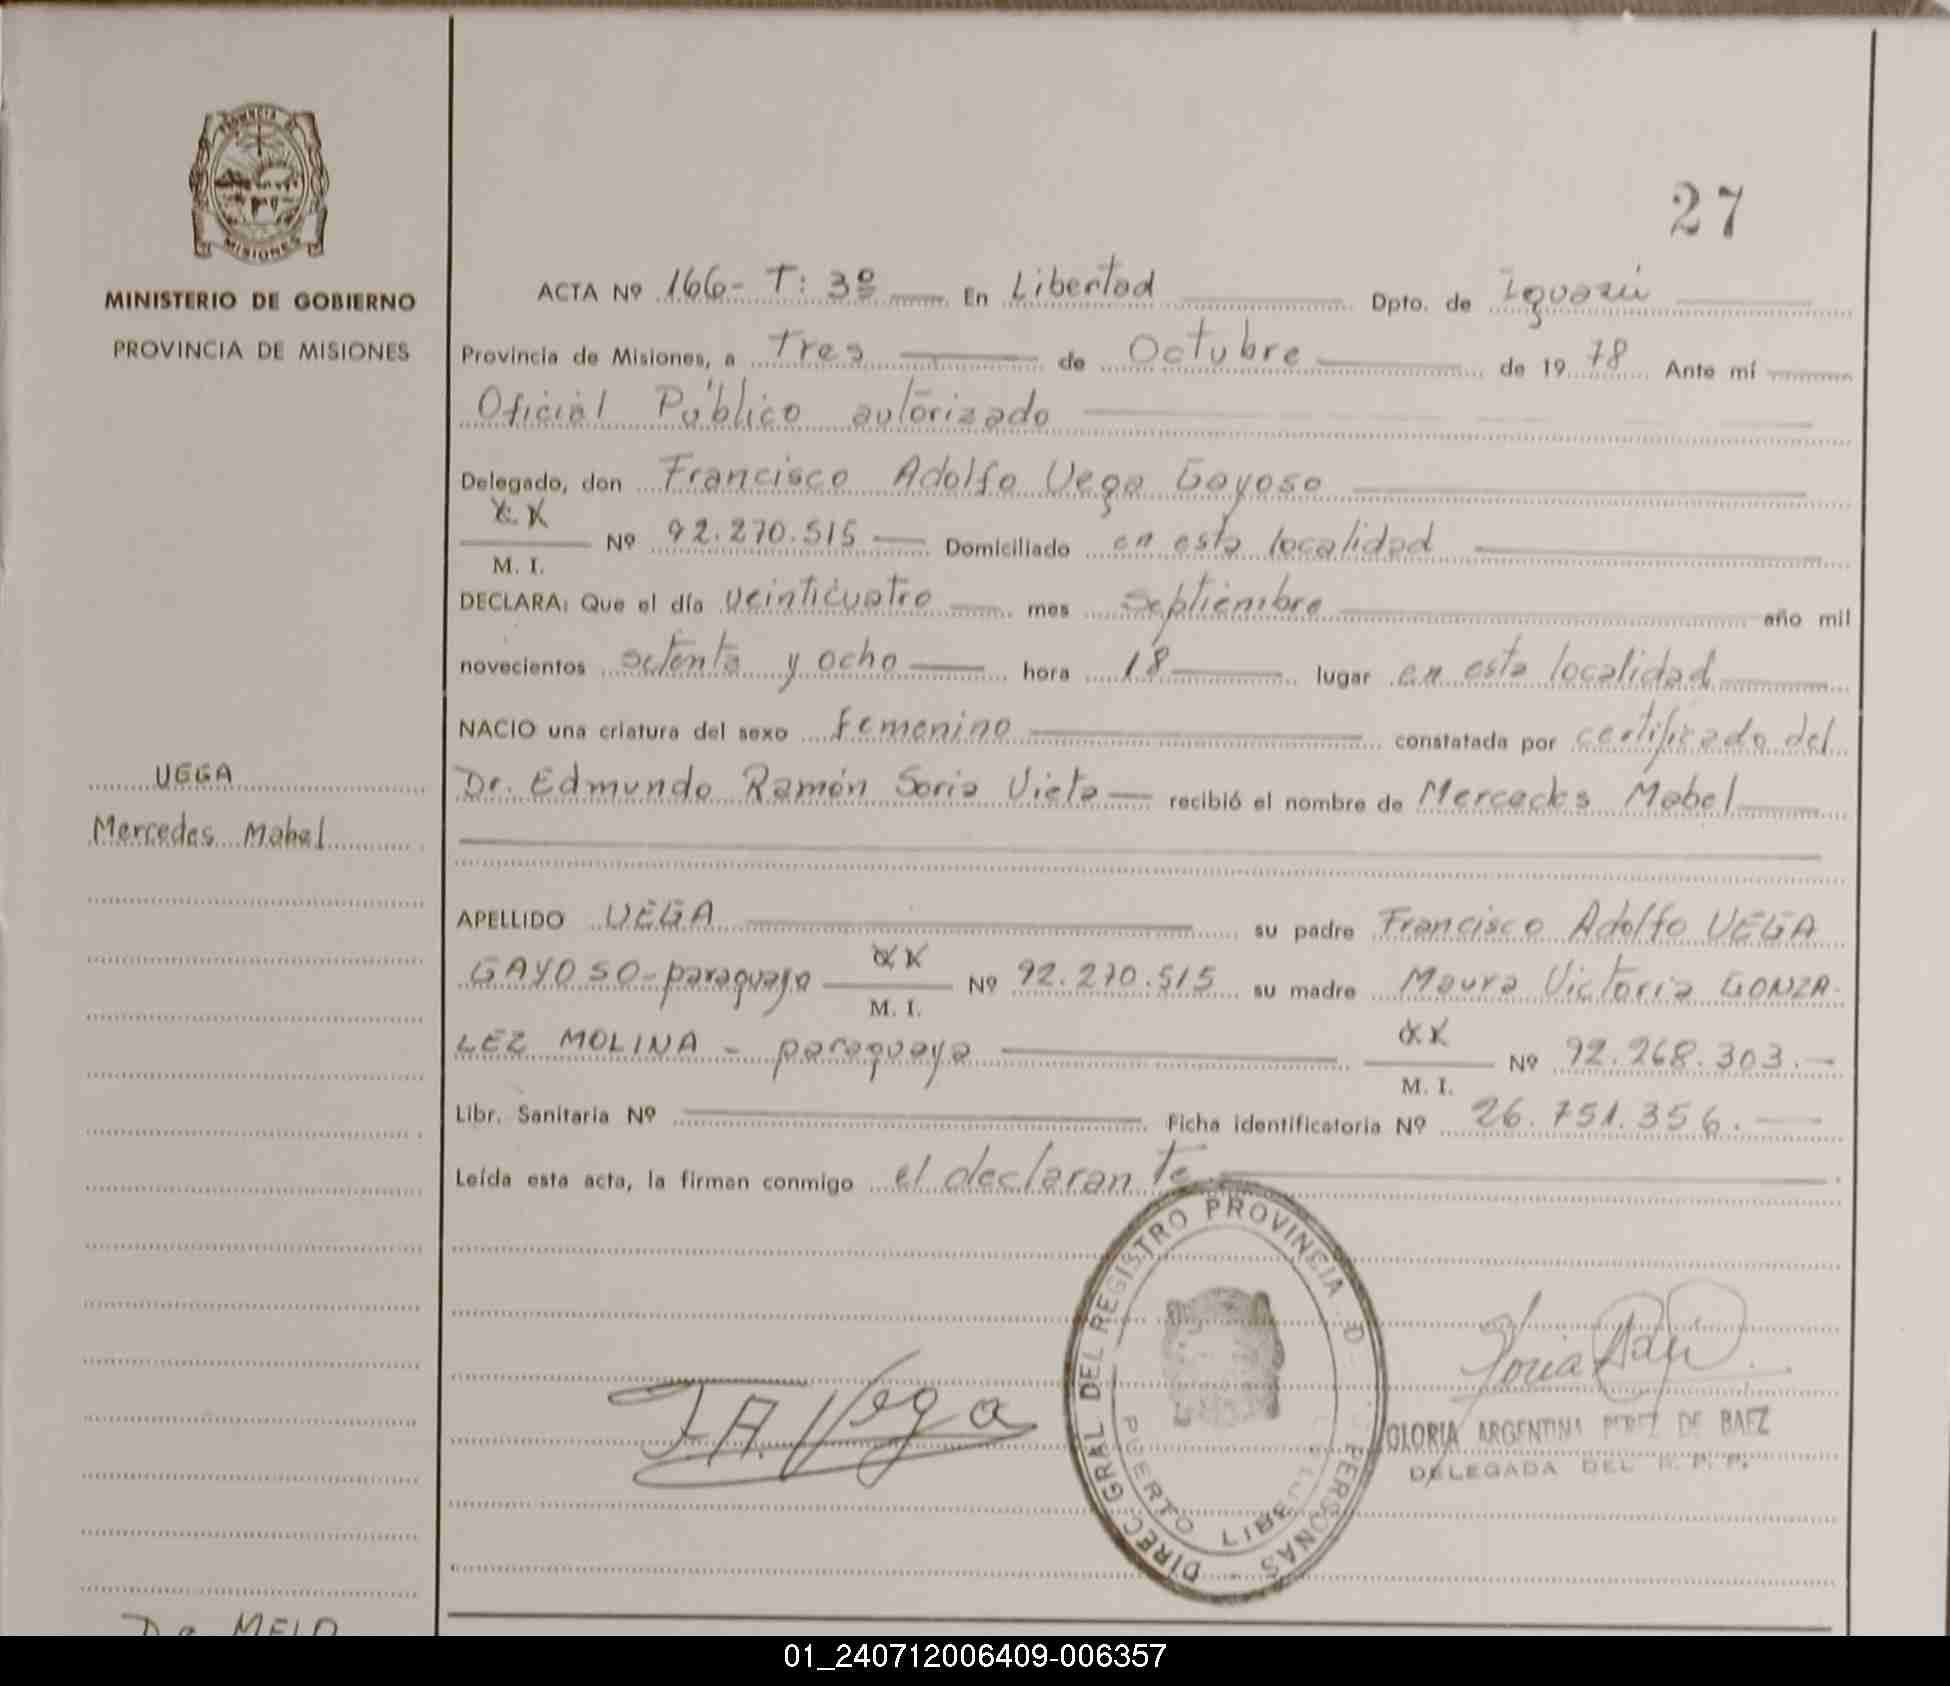 PROVINCIA DE
MISIONES
MINISTERIO DE GOBIERNO
PROVINCIA DE MISIONES
27
ACTA Nº 166- T: 3º En Libertad Dpto. de Iguazú
Provincia de Misiones, a Tres de Octubre de 19 78 Ante mí
Oficial Público autorizado
Delegado, don Francisco Adolfo Vega Gayoso
M. I. Nº 92.270.515 Domiciliado en esta localidad
DECLARA: Que el día veinticuatro mes septiembre año mil
novecientos setenta y ocho hora 18 lugar en esta localidad
NACIO una criatura del sexo femenino constatada por certificado del
Dr. Edmundo Ramón Soria Vieta recibió el nombre de Mercedes Mabel
VEGA
Mercedes Mabel
APELLIDO VEGA su padre Francisco Adolfo VEGA
GAYOSO-paraguayo M. I. Nº 92.270.515 su madre Maura Victoria GONZA-
LEZ MOLINA - paraguaya M. I. Nº 92.268.303.-
Libr. Sanitaria Nº Ficha identificatoria Nº 26.751.356.
Leída esta acta, la firman conmigo el declarante
F.A. Vega
DIREC. GRAL DEL REGISTRO PROVINCIA D PERSONAS
PUERTO LIBE
GLORIA ARGENTINA PEREZ DE BAEZ
DELEGADA DEL R. P. P.
Da MELO
01_240712006409-006357